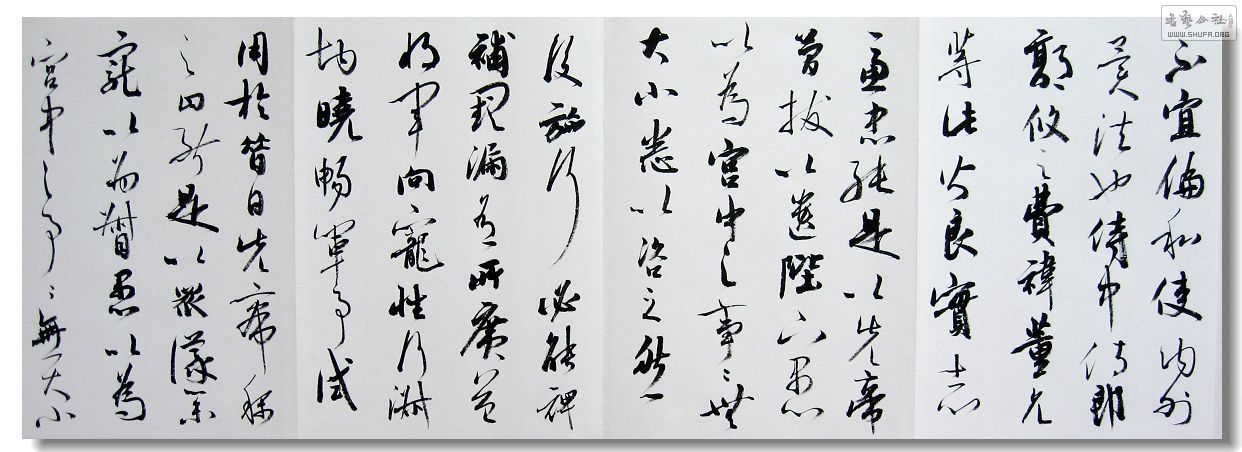 不宜偏私使内外
異法也侍中侍郎
郭攸之費禕董允
等此皆良實志
慮忠純是以先帝
簡拔以遺陛下愚
以為宮中之事々無
大小悉以咨之然
後施行必能裨
補闕漏有所廣益
将軍向寵性行淑
均曉暢軍事試
用於昔日先帝稱
之曰能是以衆議舉
寵以為督愚以為
宮中之事々無大小
书艺公社
WWW.SHUFA.ORG